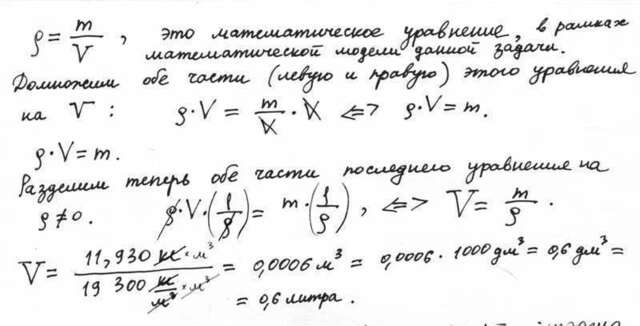 ρ = m/V , это математическое уравнение, в рамках
математической модели данной задачи.
Домножим обе части (левую и правую) этого уравнения
на V : ρ·V = m/V · V <=> ρ·V = m.
ρ·V = m.
Разделим теперь обе части последнего уравнения на
ρ ≠ 0. ρ·V·(1/ρ) = m·(1/ρ), <=> V = m/ρ .
V = 11,930 кг·м³ / 19 300 кг/м³·м³ = 0,0006 м³ = 0,0006 · 1000 дм³ = 0,6 дм³ =
= 0,6 литра .